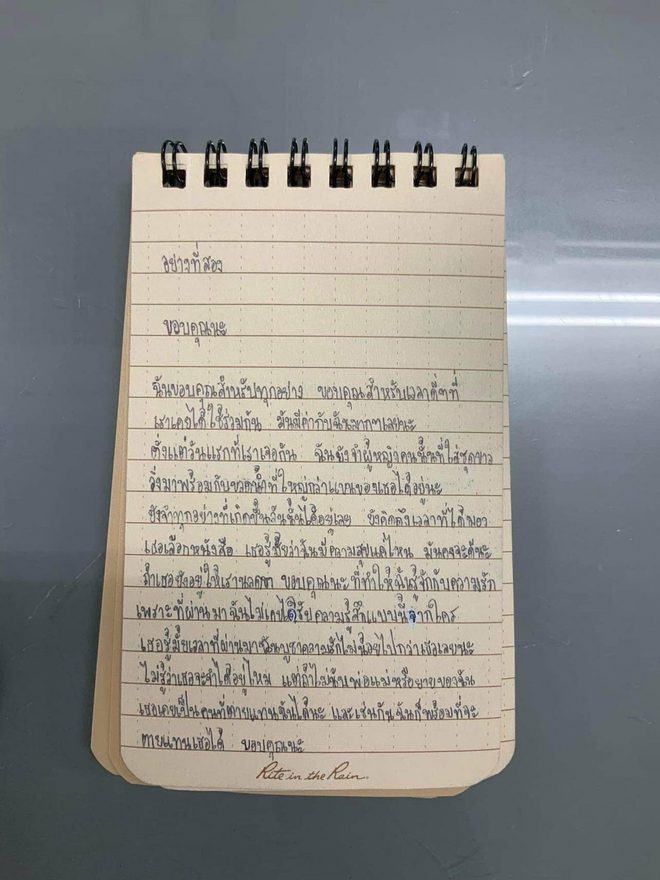 อย่างที่สอง
ขอบคุณนะ
ฉันขอบคุณสำหรับทุกอย่าง ขอบคุณสำหรับเวลาดีๆที่
เราเคยได้ใช้ร่วมกัน มันมีค่ากับฉันมากๆเลยนะ
ตั้งแต่วันแรกที่เราเจอกัน ฉันยังจำผู้หญิงคนนั้นที่ใส่ชุดขาว
วิ่งมาพร้อมกับขวดน้ำที่ใหญ่กว่าแขนของเธอได้อยู่นะ
ยังจำทุกอย่างที่เกิดขึ้นวันนั้นได้อยู่เลย ยังคิดถึงเวลาที่ได้มอง
เธอเลือกหนังสือ เธอรู้มั้ยว่าฉันมีความสุขแค่ไหน มันคงจะดีนะ
ถ้าเธอยังอยู่ให้เรา ขอบคุณนะ ที่ทำให้ฉันรู้จักกับความรัก
เพราะที่ผ่านมาฉันไม่เคยได้รับความรู้สึกแบบนี้จากใคร
เธอรู้มั้ยเวลาที่ผ่านมาฉันบูชาความรักไม่น้อยไปกว่าเธอเลยนะ
ไม่รู้ว่าเธอจะจำได้อยู่ไหม แต่ถ้าไม่นับพ่อแม่หรือยายของฉัน
เธอเคยเป็นคนที่ตายแทนฉันได้นะ และเช่นกันฉันก็พร้อมที่จะ
ตายแทนเธอได้ ขอบคุณนะ
Rite in the Rain